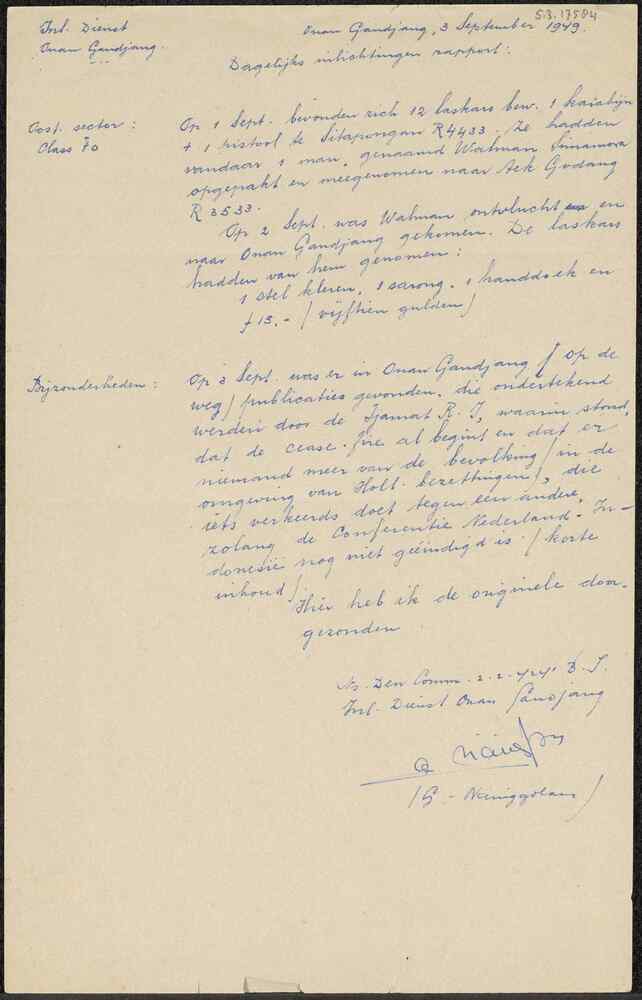 5.3.17584
Inl. Dienst
Onan Gandjang.
Onan Gandjang, 3 September 1949.
Dagelijks inlichtingen rapport:
Oost. sector:
Class Fo
Op 1 Sept. bevonden zich 12 laskars bew. 1 karabijn
+ 1 pistool te Sitapongan R4433. Ze hadden
vandaar 1 man, genaamd Walman Simamora
opgepakt en meegenomen naar Aek Godang
R 3533.
Op 2 Sept. was Walman ontvlucht en en
naar Onan Gandjang gekomen. De laskars
hadden van hem genomen:
1 stel kleren, 1 sarong. 1 handdoek en
f 15.- / vijftien gulden /
Bijzonderheden:
Op 3 Sept. was er in Onan Gandjang / op de
weg / publicaties gevonden, die ondertekend
werden door de Tjamat R.I, waarin stond,
dat de cease-fire al begint en dat er
niemand meer van de bevolking / in de
omgeving van Holl. bezettingen /, die
iets verkeerds doet tegen een andere,
zolang de Conferentie Nederland - In-
donesië nog niet geëindigd is. / korte
inhoud /
Hier heb ik de originele door-
gezonden
Ns. Den Comm. 2-2-424 B.I.
Inl. Dienst Onan Gandjang
/ G. - Nainggolan /